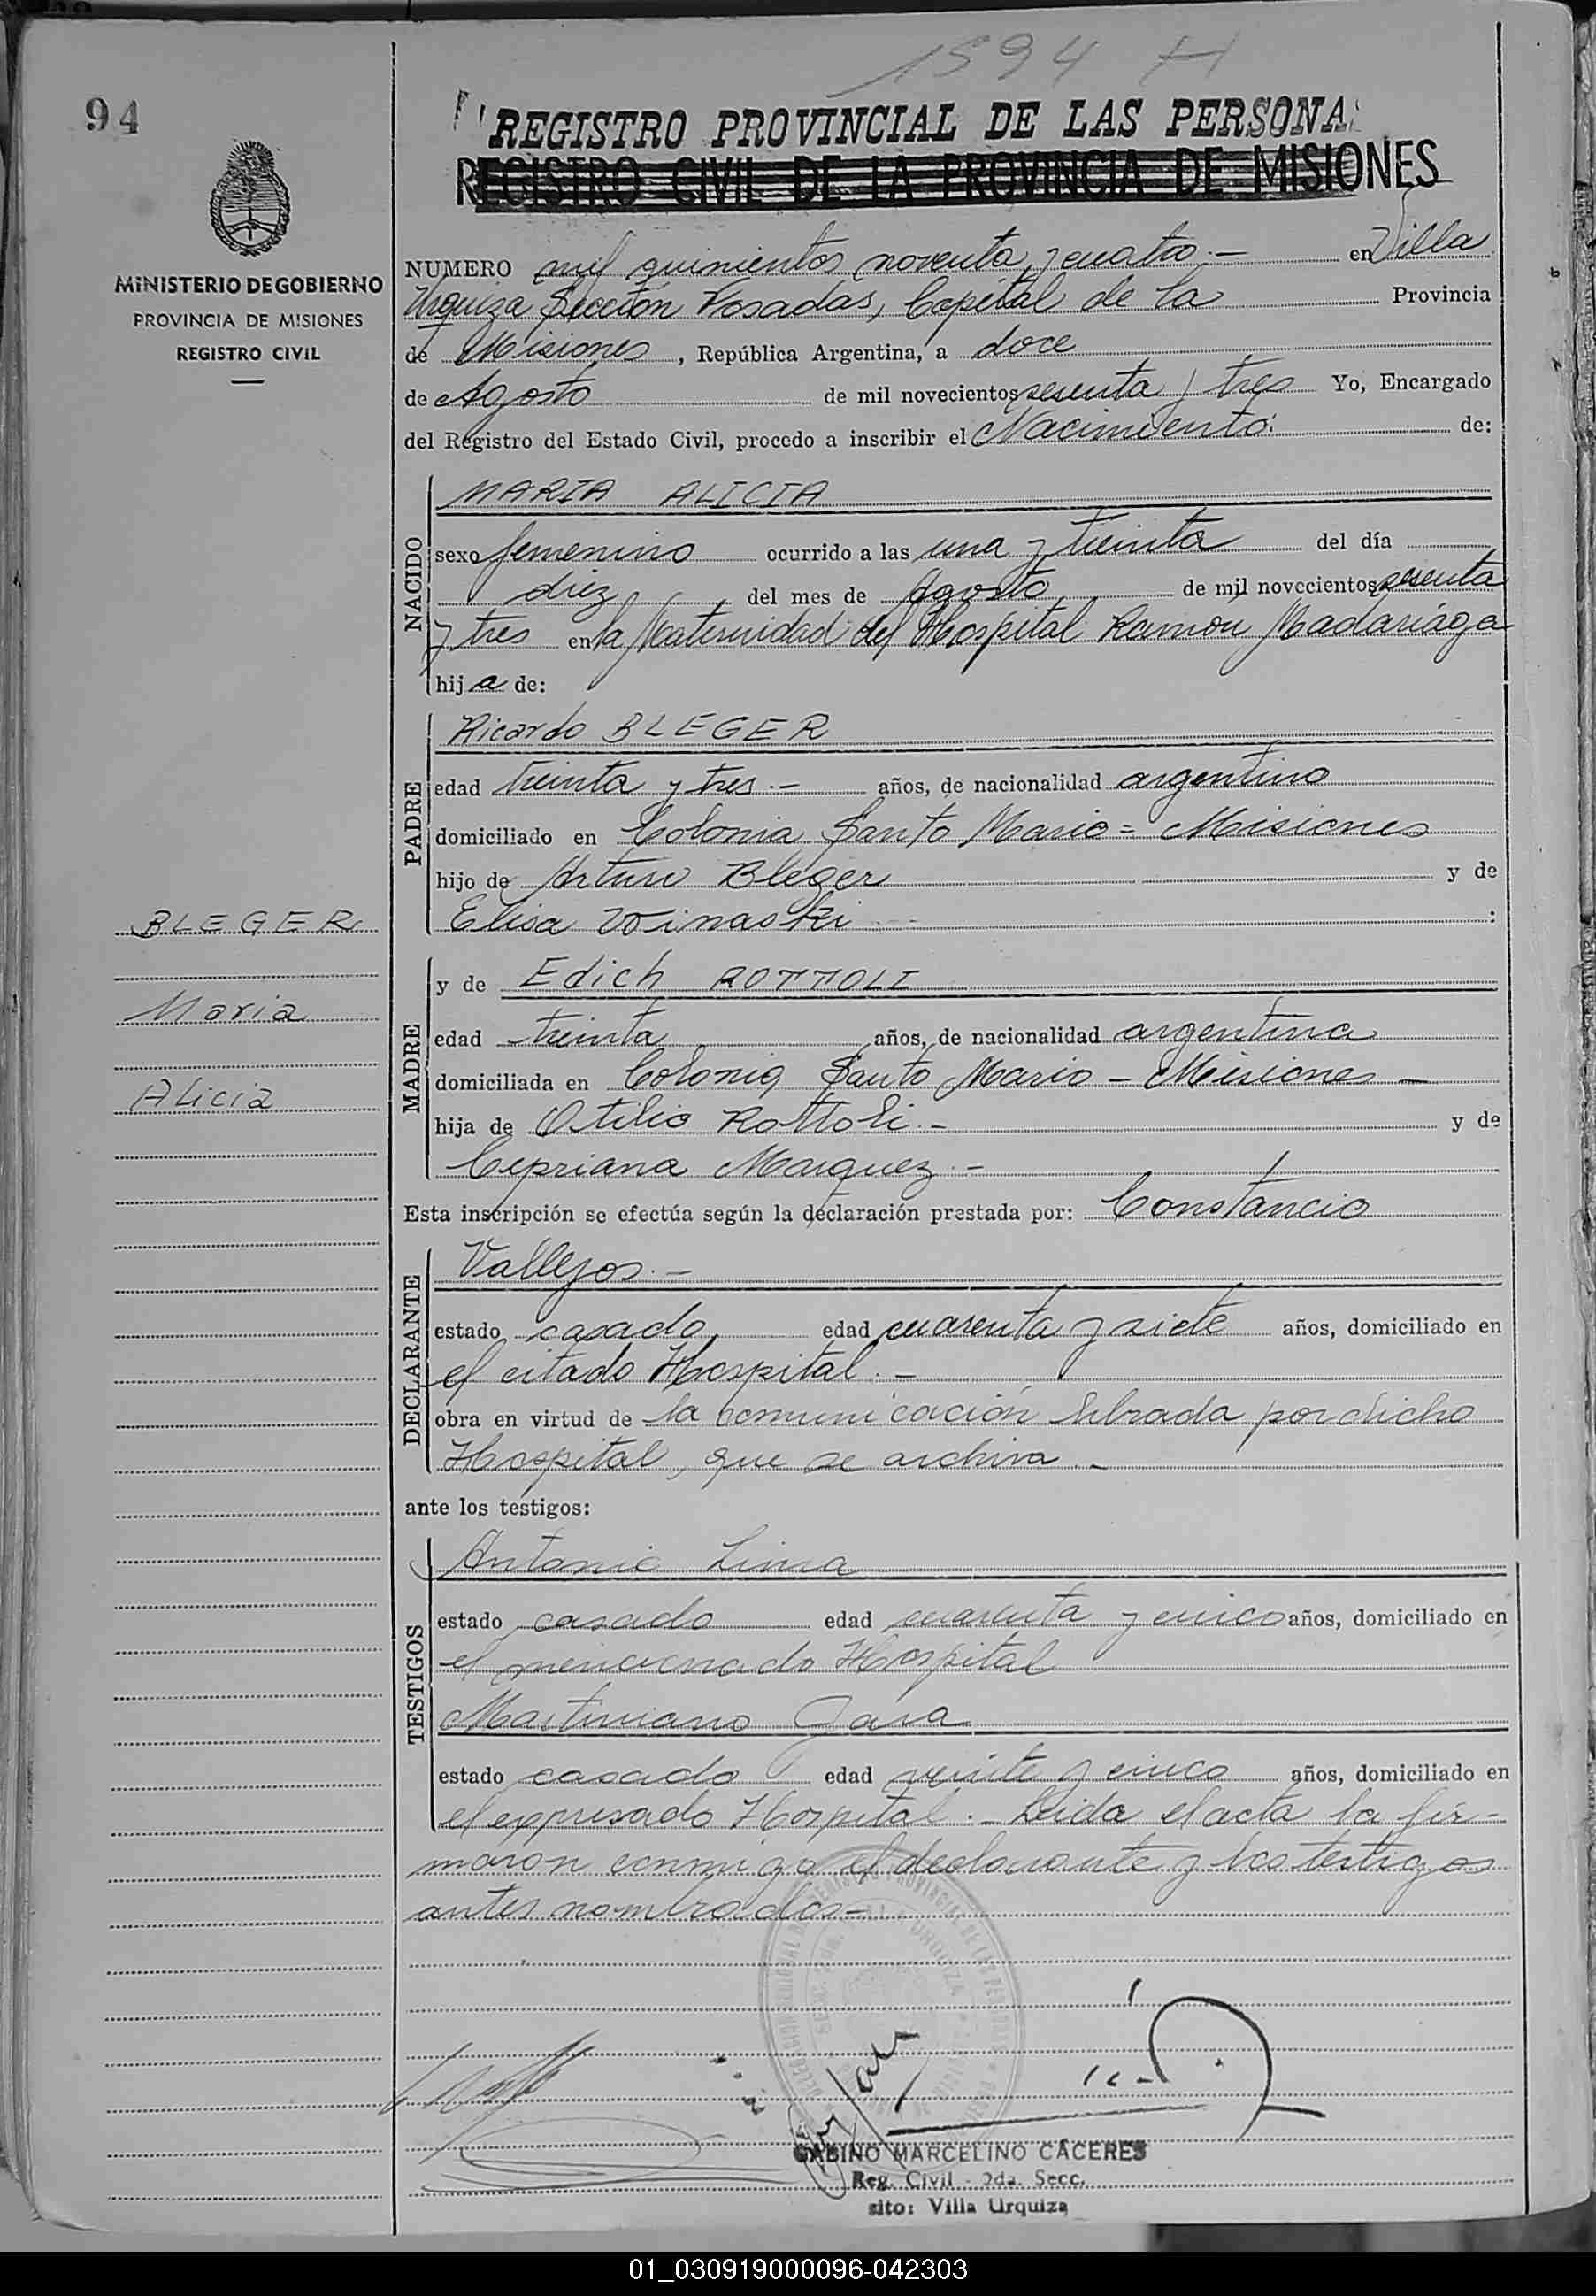 1594 H
94
REGISTRO PROVINCIAL DE LAS PERSONAS
REGISTRO CIVIL DE LA PROVINCIA DE MISIONES
MINISTERIO DE GOBIERNO
PROVINCIA DE MISIONES
REGISTRO CIVIL
NUMERO mil quinientos noventa y cuatro.- en Villa
Urquiza Sección Posadas, Capital de la Provincia
de Misiones, República Argentina, a doce
de Agosto de mil novecientos sesenta y tres Yo, Encargado
del Registro del Estado Civil, procedo a inscribir el Nacimiento: de:
NACIDO
MARIA ALICIA
sexo femenino ocurrido a las una y treinta del día
diez del mes de Agosto de mil novecientos sesenta
y tres en la Maternidad del Hospital Ramón Madariága
hija de:
PADRE
Ricardo BLEGER
edad treinta y tres.- años, de nacionalidad argentino
domiciliado en Colonia Santo Mario = Misiones
hijo de Arturo Bleger y de
Elisa Woinaski :
BLEGER
Maria
Alicia
MADRE
y de Edich ROTTOLI
edad treinta años, de nacionalidad argentina
domiciliada en Colonia Santo Mario - Misiones -
hija de Otilio Rottoli.- y de
Cipriana Marquez.-
Esta inscripción se efectúa según la declaración prestada por: Constancio
DECLARANTE
Vallejos.-
estado casado edad cuarenta y siete años, domiciliado en
el citado Hospital.-
obra en virtud de la comunicación librada por dicho
Hospital, que se archiva.-
ante los testigos:
TESTIGOS
Antonio Lima
estado casado edad cuarenta y cinco años, domiciliado en
el mencionado Hospital
Martiniano Jara
estado casado edad veinte y cinco años, domiciliado en
el expresado Hospital.- Leida el acta la fir-
maron conmigo el declarante y los testigos
antes nombrados-
GABINO MARCELINO CACERES
Reg. Civil - 2da. Secc.
sito: Villa Urquiza
01_030919000096-042303